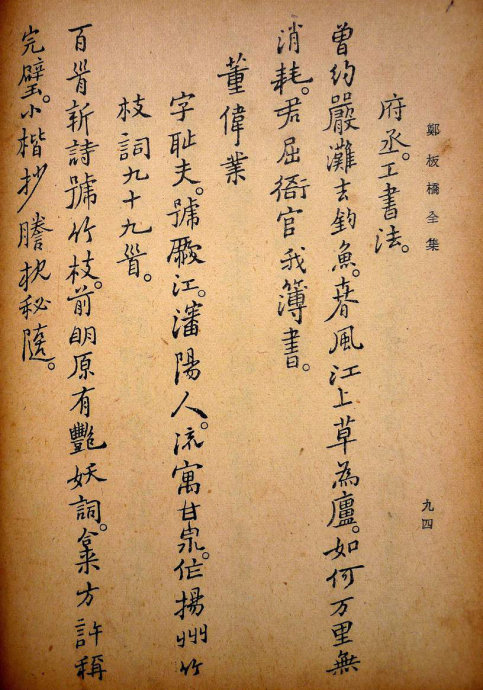 鄭板橋全集
九四
府丞。工書法。
曾約嚴灘去釣魚。春風江上草為廬。如何万里無
消耗。君屈衙官我簿書。
董偉業
字耻夫。號愛江。瀋陽人。流寓甘泉。作揚州竹
枝詞九十九首。
百首新詩號竹枝。前明原有艷妖詞。合來方許稱
完璧。小楷抄謄枕秘隨。